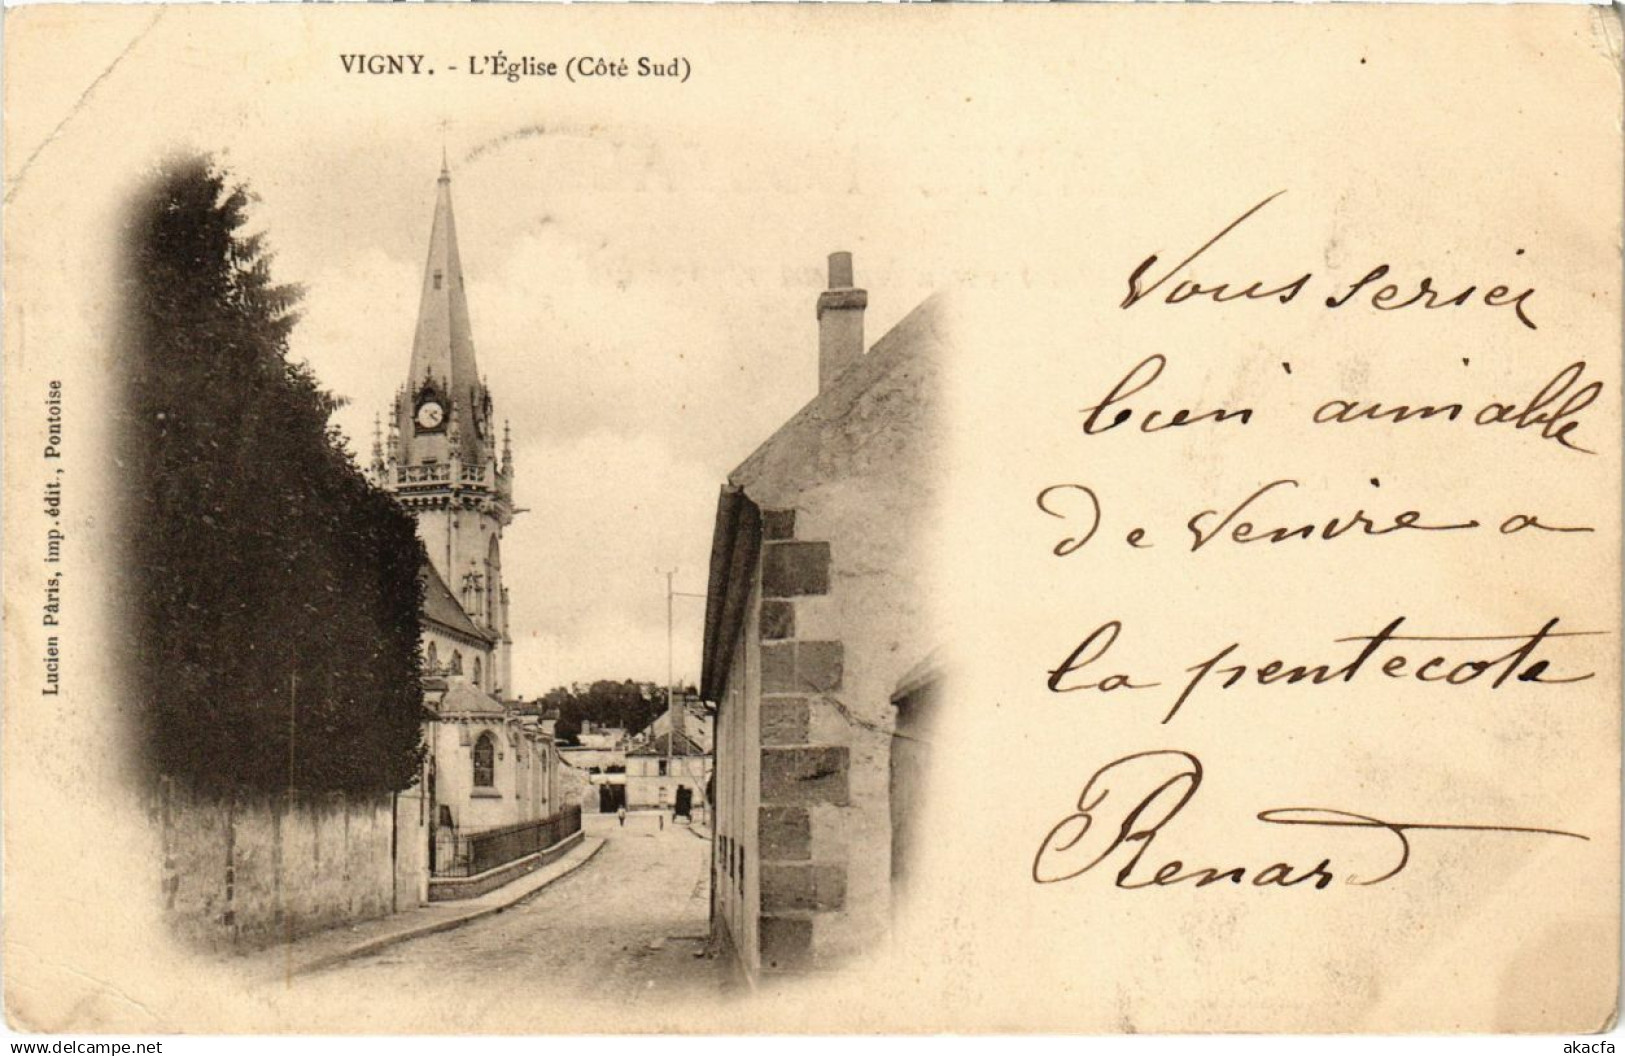 VIGNY. - L'Église (Côté Sud)
Lucien Pâris, imp. édit., Pontoise
Vous seriez
bien aimable
de venire a
la pentecote
Renard
akacfa